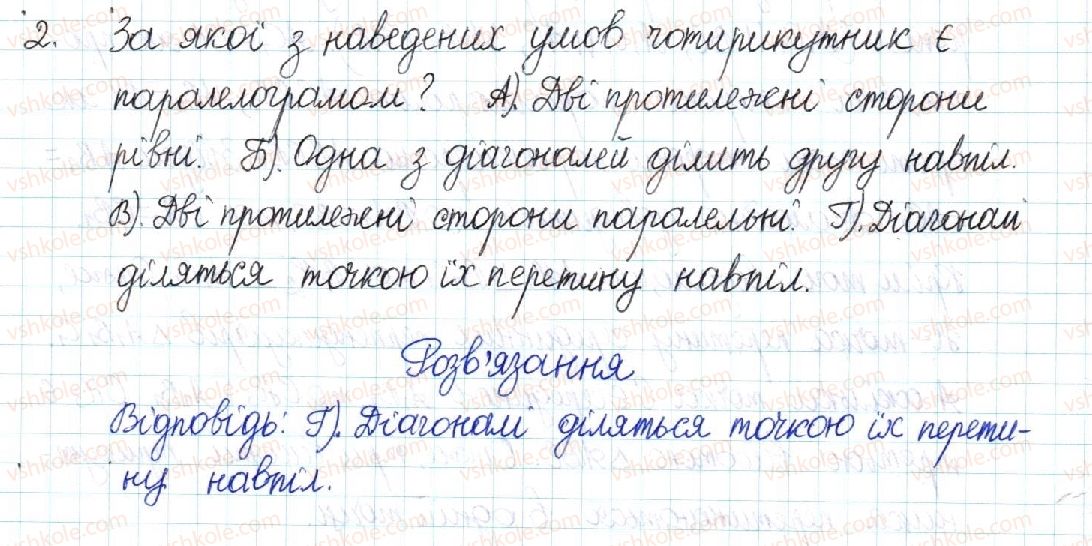 2. За якої з наведених умов чотирикутник є
паралелограмом? А). Дві протилежні сторони
рівні. Б). Одна з діагоналей ділить другу навпіл.
В). Дві протилежні сторони паралельні. Г). Діагоналі
діляться точкою їх перетину навпіл.
Розв'язання
Відповідь: Г). Діагоналі діляться точкою їх перети-
ну навпіл.